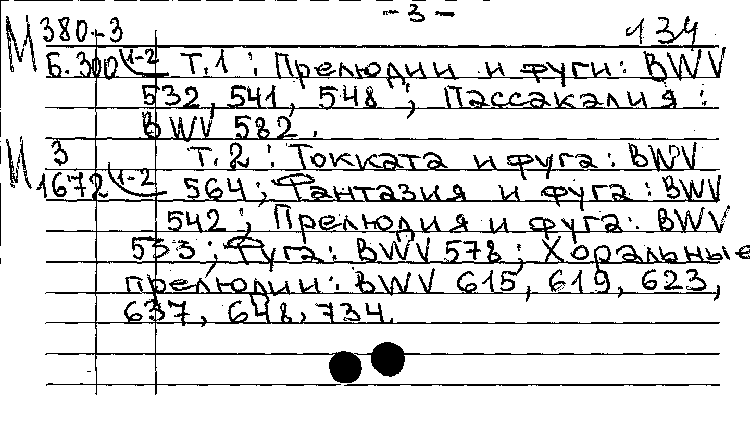 - 3 -
М 380-3 134
Б.300 (1-2 Т.1 : Прелюдии и фуги: BWV
532, 541, 548 ; Пассакалия :
BWV 582.
М 3 Т.2 : Токката и фуга : BWV
1672 (1-2 564; Фантазия и фуга : BWV
542 ; Прелюдия и фуга: BWV
533 ; Фуга: BWV 578 ; Хоральные
прелюдии: BWV 615, 619, 623,
637, 648, 734.